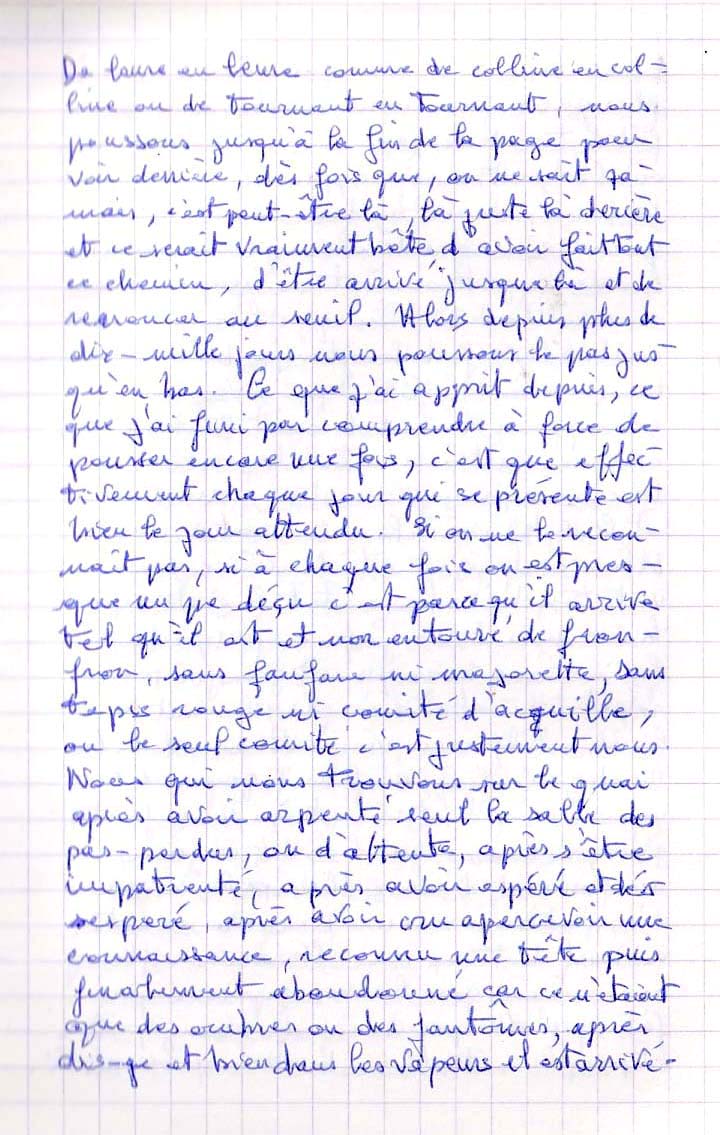 De heure en heure comme de colline en col-
line ou de tournant en tournant, nous
poussons jusqu'à la fin de la page pour
voir derrière, dès fois que, on ne sait ja-
mais, c'est peut-être là, là juste là derrière
et ce serait vraiment bête d'avoir fait tout
ce chemin, d'être arrivé jusque là et de
renoncer au seuil. Alors depuis plus de
dix-mille jours nous poussons le pas jus-
qu'en bas. Ce que j'ai apprit depuis, ce
que j'ai fini par comprendre à force de
pousser encore une fois, c'est que effec-
tivement chaque jour qui se présente est
bien le jour attendu. Si on ne le recon-
naît pas, si à chaque fois on est pres-
que un pe déçu c'est parce qu'il arrive
tel qu'il est et non entouré de frou-
frou, sans fanfare ni majorette, sans
tapis rouge ni comité d'acquille,
ou le seul comité c'est justement nous.
Nous qui nous trouvons sur le quai
après avoir arpenté seul la salle des
pas-perdus, ou d'attente, après s'être
impatienté, après avoir espéré et dés
esperé, après avoir cru apercevoir une
connaissance, reconnu une tête puis
finalement abandonné car ce n'étaient
que des ombres ou des fantômes, après
dis-je et bien dans les vapeurs il est arrivé-